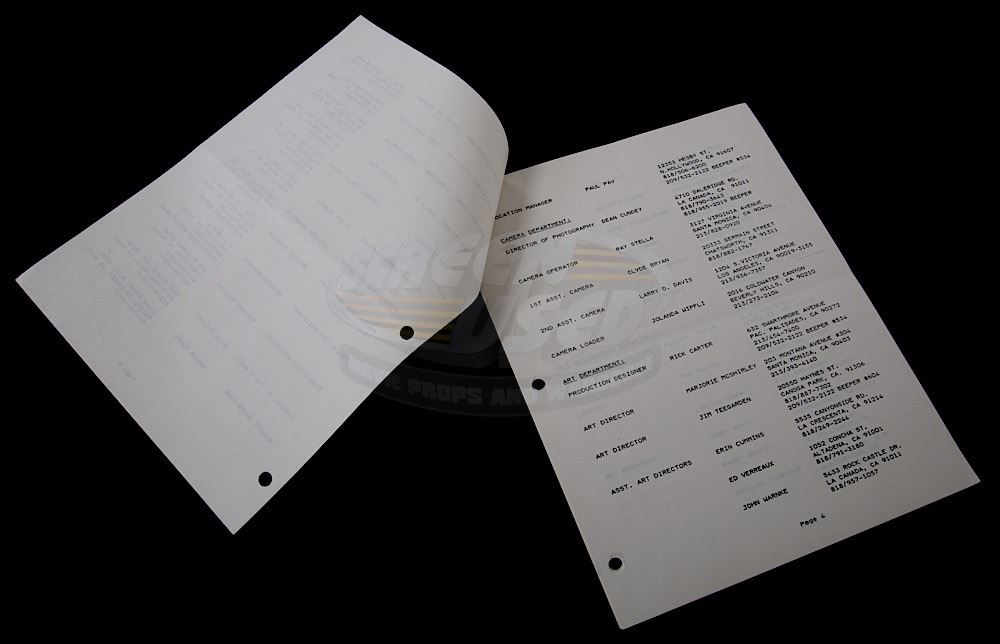 PAUL PAV
LOCATION MANAGER
12353 HESBY ST.
N.HOLLYWOOD, CA 91607
818/506-6200
209/532-2122 BEEPER #534
CAMERA DEPARTMENT:
DIRECTOR OF PHOTOGRAPHY DEAN CUNDEY
4710 DALERIDGE RD.
LA CANADA, CA 91011
818/790-3643
818/955-2019 BEEPER
CAMERA OPERATOR RAY STELLA
3127 VIRGINIA AVENUE
SANTA MONICA, CA 90404
213/828-0920
1ST ASST. CAMERA CLYDE BRYAN
20333 GERMAIN STREET
CHATSWORTH, CA 91311
818/882-1767
2ND ASST. CAMERA LARRY D. DAVIS
1204 S.VICTORIA AVENUE
LOS ANGELES, CA 90019-3155
213/936-7357
CAMERA LOADER JOLANDA WIPFLI
2016 COLDWATER CANYON
BEVERLY HILLS, CA 90210
213/273-2104
ART DEPARTMENT:
PRODUCTION DESIGNER RICK CARTER
632 SWARTHMORE AVENUE
PAC. PALISADES, CA 90272
213/454-7400
209/532-2122 BEEPER #534
ART DIRECTOR MARJORIE MCSHIRLEY
203 MONTANA AVENUE #304
SANTA MONICA, CA 90403
213/393-4140
ART DIRECTOR JIM TEEGARDEN
20550 HAYNES ST.
CANOGA PARK, CA. 91306
818/887-7302
209/532-2122 BEEPER #504
ASST. ART DIRECTORS ERIN CUMMINS
5535 CANYONSIDE RD.
LA CRESCENTA, CA 91214
818/249-2244
ED VERREAUX
1052 CONCHA ST.
ALTADENA, CA 91001
818/791-3180
JOHN WARNKE
5433 ROCK CASTLE DR.
LA CANADA, CA 91011
818/957-1057
Page 4
SCREEN
USED
MOVIE PROPS AND